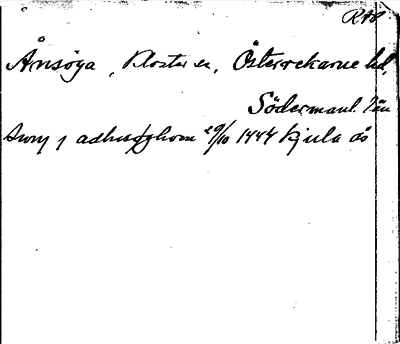 RAP
Årnsöga, Kloster sn, Österrekarne hd,
Södermanl. län
Swnj j adhnsøghom 29/10 1447 Kjula ds